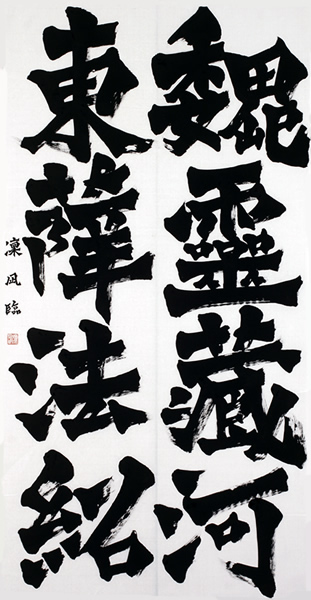 魏靈藏河
東薛法紹
凜風臨